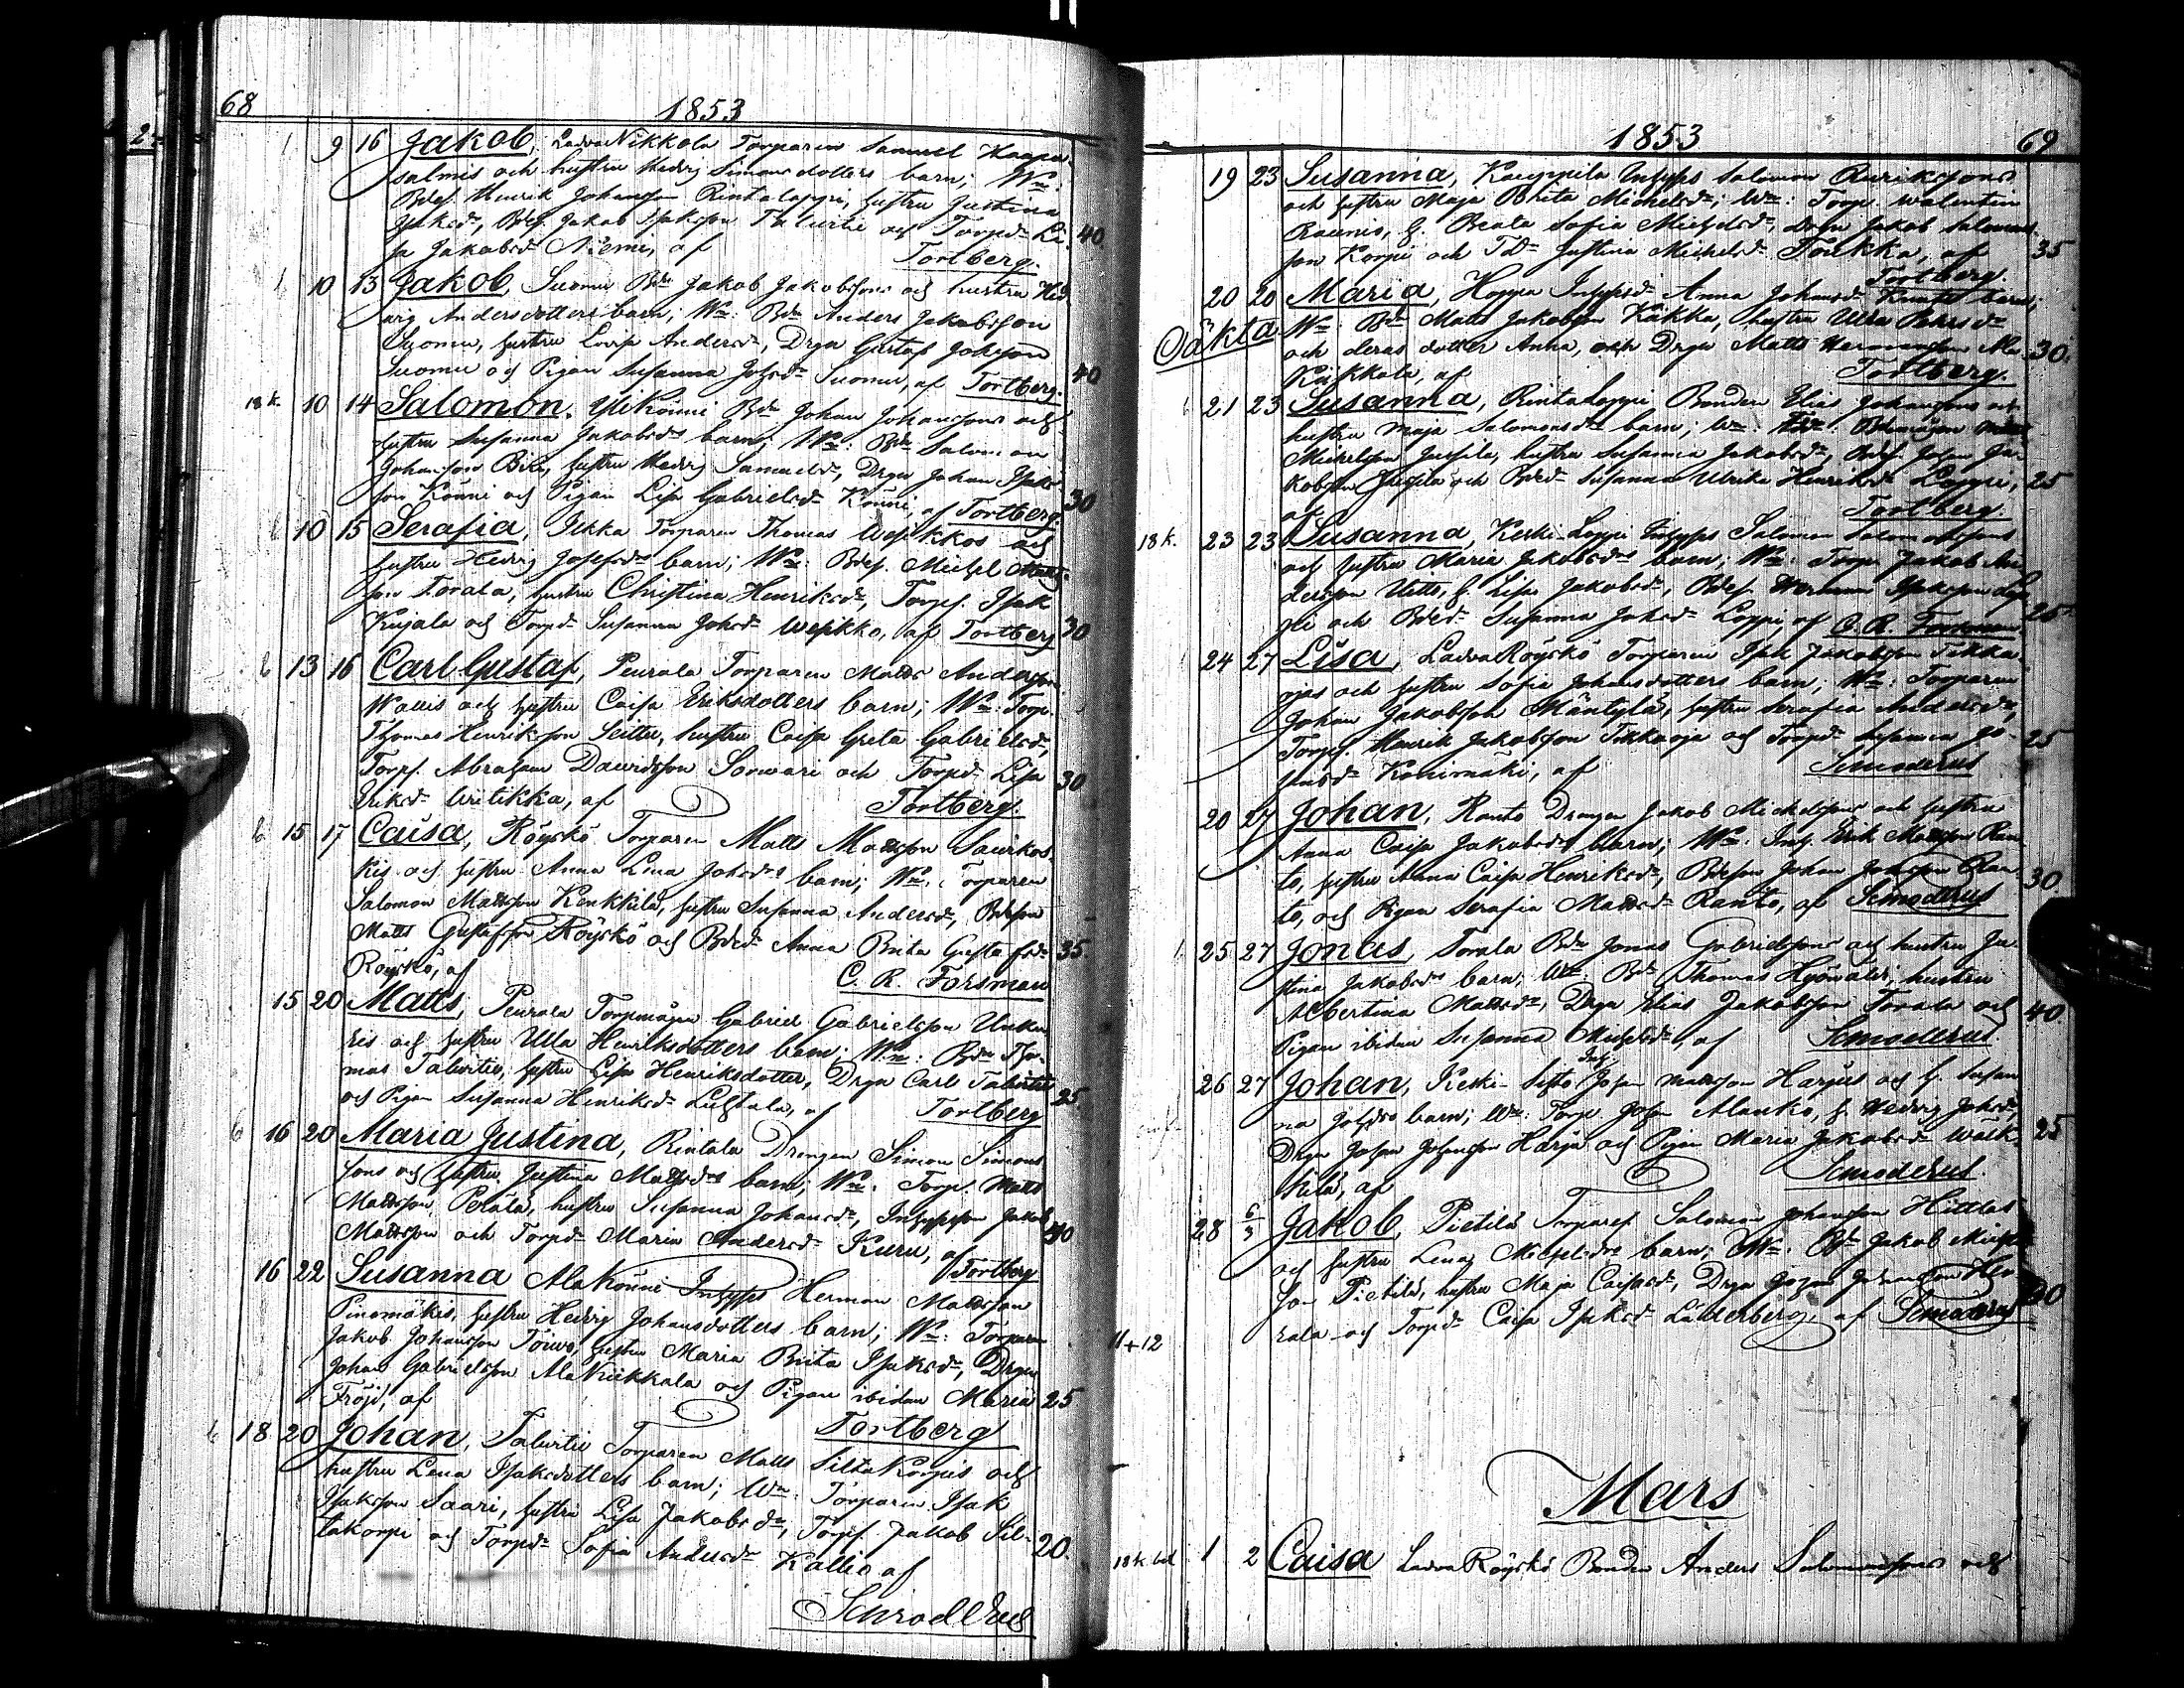 68
1853
9 16 Jakob, Ladva Nikkola Torparen Samuel Haapa-
salmis och hustru Hedvig Simonsdotters barn; Wn:
Bdes. Henrik Johansson Rintaloppi, hustru Justina
Jaksdr, Bdes. Jakob Isaksson och Torpdr Li- 40
sa Jakobsdr Niemi, af Tortberg.
10 13 Jakob, Suomu Bdn Jakob Jakobssons och hustru Hed-
vig Andersdotters barn; Wn: Bdn Anders Jakobsson
Suomu, hustru Lovisa Andersdr, Drgn Gustaf Johsson
Suomu och Pigan Susanna Johsdr Suomu, af Tortberg. 40
18 k. 10 14 Salomon, Ylikönni Bdn Johan Johanssons och
hustru Susanna Jakobsdrs barn; Wn: Bdn Salomon
Johansson hustru Hedvig Samuelsdr, Drgn Johan Isaks-
son Könni och Pigan Lisa Gabrielsdr Könni, af Tortberg. 30
10 15 Serafia, Jekka Torparen Thomas Wesikkos och
hustru Hedvig Josefsdrs barn; Wn: Bdes. Michel Matts-
son Torala, hustru Christina Henriksdr, Torps. Isak
Kujala och Torpdr Susanna Johsdr Wesikko, af Tortberg 30
13 16 Carl Gustaf, Peurala Torparen Matts Andersson
Wallis och hustru Caisa Eriksdotters barn; Wn: Torp.
Thomas Henriksson Seittu, hustru Caisa Greta Gabrielsdr,
Torps. Abraham Davidsson Sorvari och Torpdr Lisa 30
Eriksdr Witikka, af Tortberg.
15 17 Caisa, Röyskö Torparen Matts Mattsson Sairkos-
kis och hustru Anna Lena Johsdrs barn; Wn: Torparen
Salomon Mattsson Kenkkilä, hustru Susanna Andersdr, Bdeson
Matts Gustafsson Röyskö och Bdedr Anna Brita Gustafsdr 35
Röyskö, af C. R. Forsman
15 20 Matts, Peurala Torpmågen Gabriel Gabrielsson Unku-
ris och hustru Ulla Henriksdotters barn; Wn: Bdn Tho-
mas Talvitie, hustru Lisa Henriksdotter, Drgn Carl Talvitie
och Pigan Susanna Henriksdr Luhtala, af Tortberg 25.
16 20 Maria Justina, Rintala Drengen Simon Simons-
sons och hustru Justina Mattsdrs barn; Wn: Torp. Matts
Mattsson Perälä, hustru Susanna Johansdr, Inhysesson Jakob
Mattsson och Torpdr Maria Andersdr Kuru, af Tortberg 40
16 22 Susanna Alakönni Inhyses Herman Mattsson
Pinomäkis, hustru Hedvig Johansdotters barn; Wn: Torparen
Jakob Johansson Törwo, hustru Maria Brita Isaksdr, Drgn
Johan Gabrielsson Ala Niikkala och Pigan ibidem Maria 25
Fröjd, af Tortberg
18 20 Johan, Talvitie Torparen Matts Siltakorpis och
hustru Lena Isaksdotters barn; Wn: Torparen Isak
Isaksson Saari, hustru Lisa Jakobsdr, Torps. Jakob Sil-
takorpi och Torpdr Sofia Andersdr Kallio af 20.
Schroderus
1853
69
19 23 Susanna, Kauppila Inhyses Salomon
och hustru Maja Brita Michelsdr; Wn: Torp. Walentin
Raunio, h. Beata Sofia Michelsdr, Drgn Jakob Salomons-
son Korpi och Tdr Justina Michelsdr Toukka, af 35
Tortberg
20 20 Maria, Hoppa Inhysesdr Anna Johansdr barn;
Oäkta Wn: Bdn Matts Jakobsson Kåkka, hustru Ulla
och deras dotter Anna, och Drgn Matts Hermansson 30.
Kiikkala, af Tortberg.
21 23 Susanna, Rintaloppi Bonden Elias Johanssons och
hustru Maja Salomonsdr barn; Wn: Bdemågen
Michelsson Jussila, hustru Susanna Jakobsdr, Bdes. Johan Ja-
kobsson Jussila och Bdedr Susanna Ulrika Henriksdr Loppi, 25
af Tortberg.
18 k. 23 23 Susanna, Keski-Loppi Inhyses Salomon Salomonssons
och hustru Maria Jakobsdrs barn; Wn: Torp. Jakob An-
dersson Uitto, h. Lisa Jakobsdr, Bdes. Herman Isaksson Lop-
pi och Bdedr Susanna Johsdr Loppi, af C. R. Forsman. 25
24 27 Lisa, Ladva Röyskö Torparen Isak Jakobsson Tikka-
ojas och hustru Sofia Johansdotters barn; Wn: Torparen
Johan Jakobsson Mäntylä, hustru Serafia Andersdr,
Torps. Henrik Jakobsson Tikkaoja och Torpdr Susanna Jo- 25
hansdr Kohinmäki, af Schroderus
20 27 Johan, Ranto Drengen Jakob Michelssons och hustru
Anna Caisa Jakobsdrs barn; Wn: Inh. Erik Mattsson Ran-
to, hustru Anna Caisa Henriksdr, Bdeson Johan Johsson Ran- 30
to, och Pigan Serafia Mattsdr Ranto, af Schroderus
25 27 Jonas, Torala Bdn Jonas Gabrielssons och hustru Ju-
stina Jakobsdrs barn; Wn: Bdn Thomas hustru
Albertina Mattsdr, Drgn Elias Jakobsson Torala och 40
Pigan ibidem Susanna Michelsdr, af Schroderus.
26 27 Johan, Keski-Sipto Inh. Johan Mattsson Harjus och h. Susan-
na Johsdrs barn; Wn: Torp. Johan Alanko, h. Hedvig Johsdr,
Drgn Johan Johansson Harju och Pigan Maria Jakobsdr Wälk- 25
kilä, af Schroderus
28 6/3 Jakob, Pietilä Torpares. Salomon Johansson Hittlas
och hustru Lena Michelsdrs barn; Wn: Bdn Jakob Michels-
son Pietilä, hustru Maja Caisa, Drgn Johan Johansson 30
rala och Torpdr Caisa Isaksdr Lätterberg, af Schroderus
11+12
Mars
18 k. 1 2 Caisa Ladva Röyskö Bonden Anders Salomonssons och